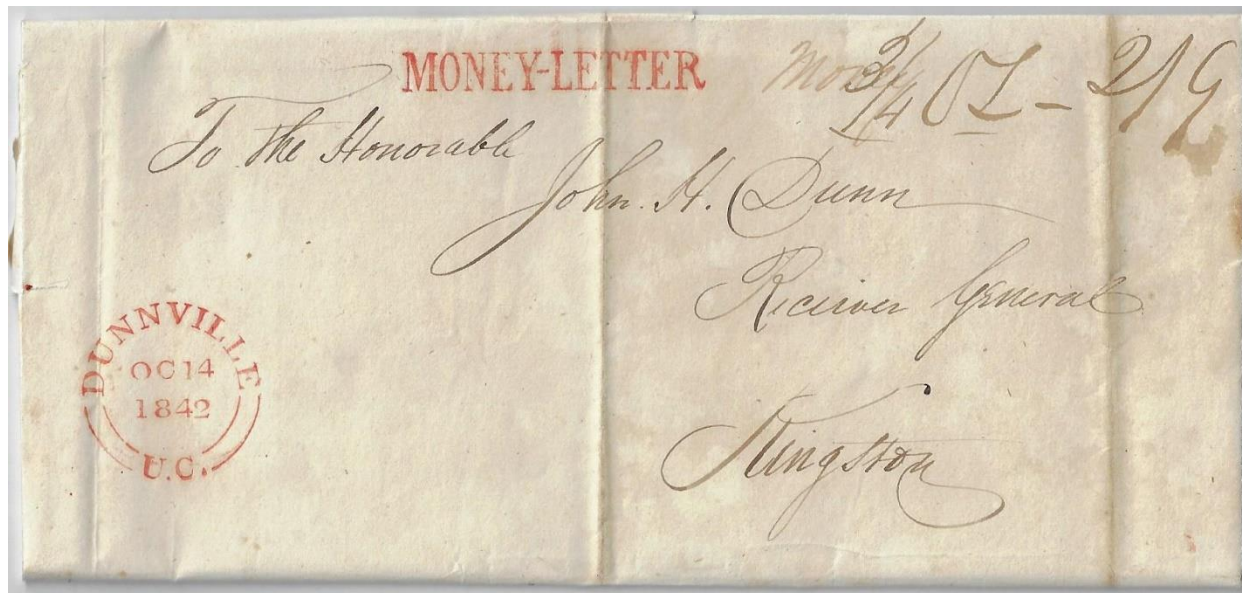 MONEY-LETTER Money 3/4 OZ - 2/9
To the Honorable
John. H. Dunn
Receiver General
Kingston
DUNNVILLE
OC 14
1842
U.C.